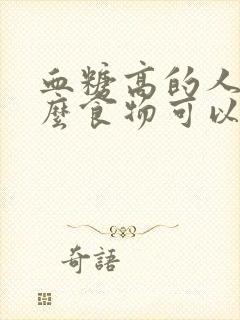 血糖高的人
麼食物可以
奇語